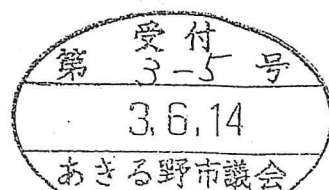 受付
第 3-5 号
3.6.14
あきる野市議会